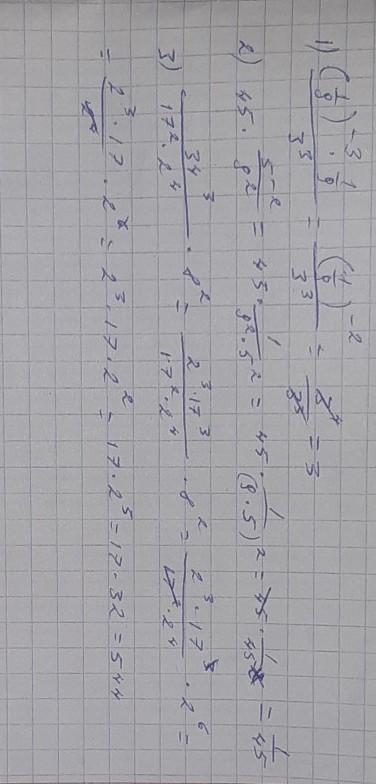 1) (1/9)^-3 · 1/9 / 3^3 = (1/9)^-2 / 3^3 = 3^4 / 3^3 = 3
2) 45 · 5^-2 / 9^2 = 45 · 1 / 9^2 · 5^2 = 45 · 1 / (9 · 5)^2 = 45 · 1 / 45^2 = 1 / 45
3) 34^3 / 17^2 · 2^4 · 8^2 = 2^3 · 17^3 / 17^2 · 2^4 · 8^2 = 2^3 · 17^3 / 17^2 · 2^4 · 2^6 =
= 2^3 · 17 / 2^4 · 2^6 = 2^3 · 17 · 2^2 = 17 · 2^5 = 17 · 32 = 544